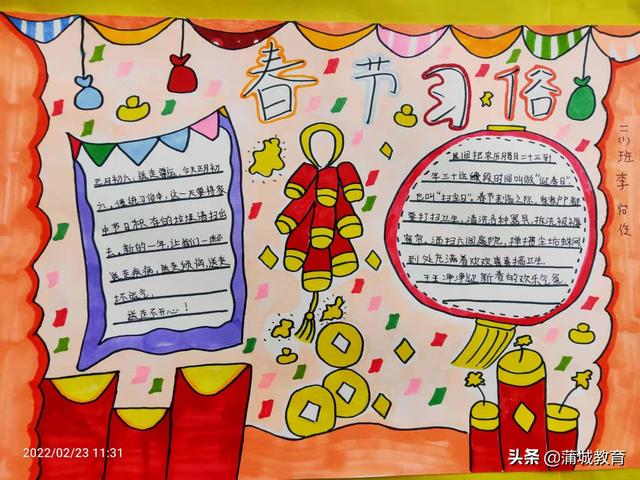 春节习俗
二(3)班 李
正月初六,送走穷运,今天正月初
六,传统习俗中,这一天要将家
中节日积存的垃圾清扫出
去,新的一年,让我们一起
送走疾病,送走烦恼,送走
坏运气,
送走不开心!
民间把农历腊月二十三到
年三十这段时间叫做“迎春日”,
也叫“扫尘日”,春节来临之际,每家每户都
要打扫卫生,清洗各种器具,拆洗被褥
窗帘,洒扫六闾庭院,掸拂尘垢蛛网
到处充满着欢欢喜喜搞卫生、
干干净净迎新春的欢乐气氛。
2022/02/23 11:31
头条 @蒲城教育